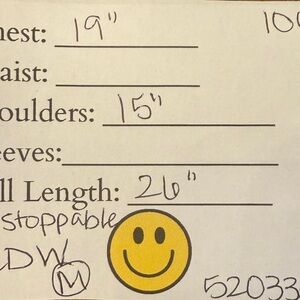 nest: 19" 10
aist:
oulders: 15"
eeves:
ll Length: 26"
stoppable
DW M
52033